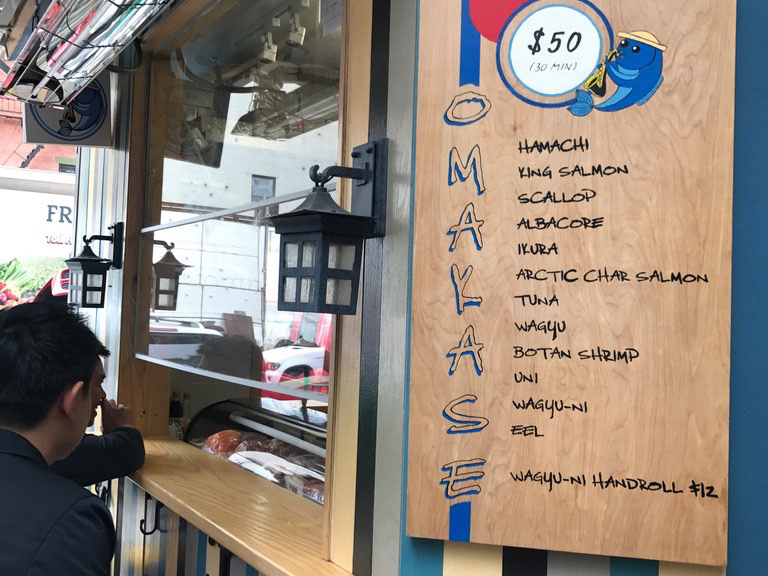 $50
(30 MIN)
OMAKASE
HAMACHI
KING SALMON
SCALLOP
ALBACORE
IKURA
ARCTIC CHAR SALMON
TUNA
WAGYU
BOTAN SHRIMP
UNI
WAGYU-NI
EEL
WAGYU-NI HANDROLL $12
FR